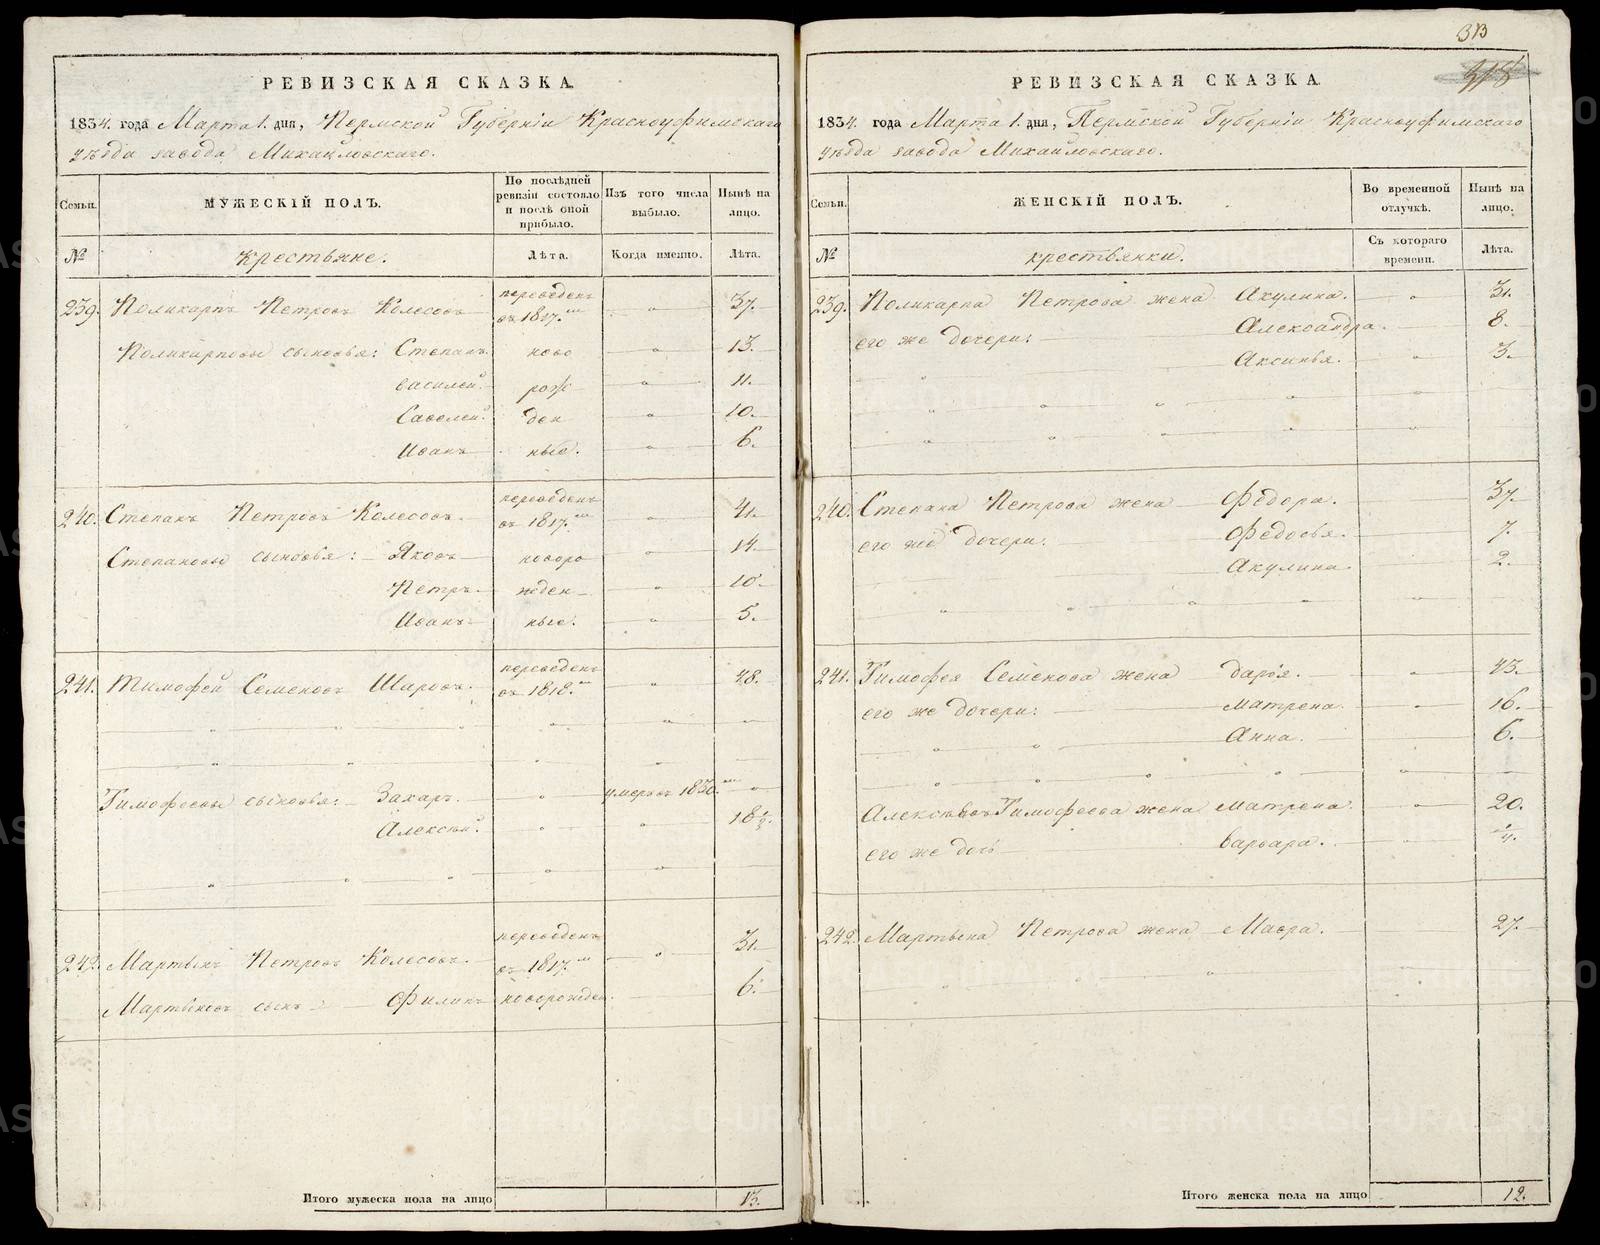 РЕВИЗСКАЯ СКАЗКА
1834. года Марта 1. дня, Пермской Губерніи Красноуфимскаго
уѣзда завода Михайловскаго.
Семьи.
МУЖЕСКІЙ ПОЛЪ.
По послѣдней ревизіи состояло и послѣ оной прибыло.
Изъ того числа выбыло.
Нынѣ на лицо.
№
Крестьяне.
Лѣта.
Когда именно.
Лѣта.
239. Поликарпъ Петровъ Колесовъ переведенъ въ 1817.мъ 37.
Поликарповы сыновья: Степанъ ново 13.
Василей рож 11.
Савелей ден 10.
Иванъ ные. 6.
240. Степанъ Петровъ Колесовъ. переведенъ въ 1817.мъ 41.
Степановы сыновья: Яковъ новоро 14.
Петръ жден 10.
Иванъ ные. 5.
241. Тимофей Семеновъ Шаровъ. переведенъ въ 1818.мъ 48.
Тимофеевы сыновья: Захаръ. умеръ въ 1830.мъ
Алексѣй. 18 1/2
242. Мартынъ Петровъ Колесовъ. переведенъ въ 1817.мъ 31.
Мартыновъ сынъ Филипъ новорожден. 6.
Итого мужеска пола на лицо 13.
313
318
РЕВИЗСКАЯ СКАЗКА
1834. года Марта 1. дня, Пермской Губерніи Красноуфимскаго
уѣзда завода Михайловскаго.
Семьи.
ЖЕНСКІЙ ПОЛЪ.
Во временной отлучкѣ.
Нынѣ на лицо.
№
крестьянки.
Съ котораго времени.
Лѣта.
239. Поликарпа Петрова жена Акулина. 31.
его же дочери: Александра. 8.
Аксинья. 3.
240. Степана Петрова жена Федора. 37.
его же дочери: Федосья. 7.
Акулина 2.
241. Тимофея Семенова жена Дарья. 43.
его же дочери: Матрена. 16.
Анна. 6.
Тимофеева жена Матрена. 20.
его же дочь Варвара. 1/4.
242. Мартына Петрова жена Мавра. 27.
Итого женска пола на лицо 12.
METRIKI.GASO-URAL.RU